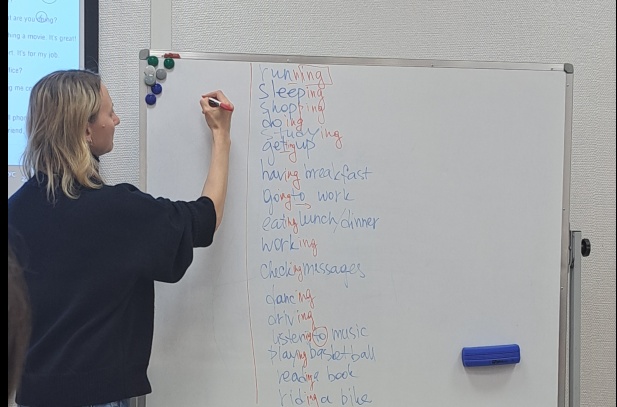 are you doing?
ing a movie. It's great!
It's for my job.
fice?
running
sleeping
shopping
doing
studying
getting up
having breakfast
going to work
eating lunch/dinner
working
checking messages
dancing
driving
listening to music
playing basketball
reading book
riding a bike